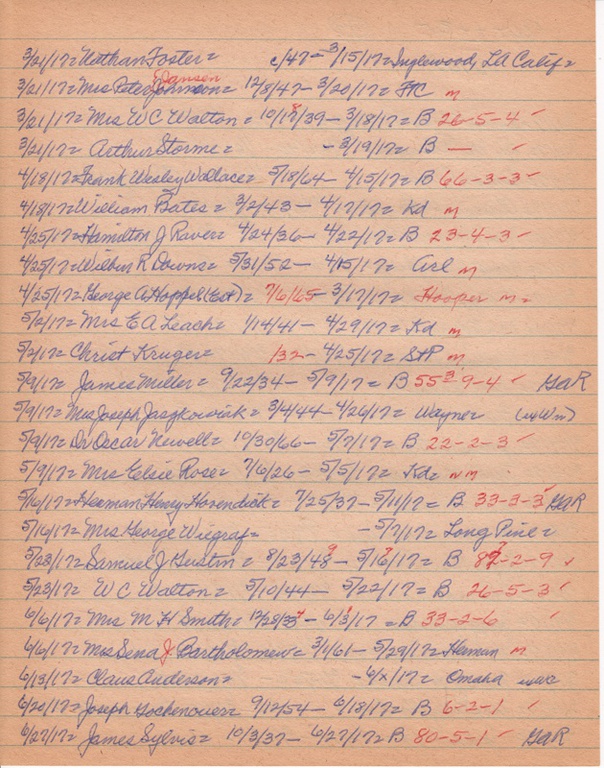 3/21/17= Nathan Foster = c/47 - 3/15/17= Inglewood, LA Calif =
3/21/17= Mrs Peter Johnson= Jansen 12/8/47 - 3/20/17= FC m
3/21/17= Mrs W C Walton = 10/17/39 - 3/18/17= B 26-5-4 ✓
3/21/17= Arthur Storme = - 3/19/17= B — ✓
4/18/17= Frank Wesley Wallace= 5/18/64 - 4/15/17= B 66-3-3 ✓
4/18/17= William Bates = 3/2/43 - 4/17/17= Kd m
4/25/17= Hamilton J Raver= 4/24/36 - 4/22/17= B 23-4-3 ✓
4/25/17= Wilbur R Downs= 5/31/52 - 4/15/17= Arl m
4/25/17= George A Hoppel (Est)= 7/6/65 - 3/17/17= Hooper m =
5/2/17= Mrs E A Leach= 1/14/41 - 4/29/17= Kd m
5/2/17= Christ Kruger= /32 - 4/25/17= StP m
5/9/17= James Miller= 9/22/34 - 5/9/17= B 55-9-4 ✓ GaR
5/9/17= Mrs Joseph Jaszkowiak= 3/4/44 - 4/26/17= Wayne
5/9/17= Dr Oscar Newell= 10/30/66 - 5/7/17= B 22-2-3 ✓
5/9/17= Mrs Elsie Rose= 7/6/26 - 5/5/17= Kd= m
5/16/17= Herman Henry Hovendick= 7/25/37 - 5/11/17= B 33-3-3 ✓ GaR
5/16/17= Mrs George Wiegraf= - 5/7/17= Long Pine=
5/23/17= Samuel J Gustin= 8/23/48 9 - 5/16/17= B 82-2-9 ✓
5/23/17= W C Walton= 5/10/44 - 5/22/17= B 26-5-3 ✓
6/6/17= Mrs M H Smith= 12/28/33 - 6/3/17 = B 33-2-6 ✓
6/6/17= Mrs Sena J. Bartholomew= 3/1/61 - 5/29/17= Herman m
6/13/17= Claus Anderson= - 6/x/17= Omaha
6/20/17= Joseph Gochenouer= 9/12/54 - 6/18/17= B 6-2-1 ✓
6/27/17= James Sylvis= 10/3/37 - 6/27/17= B 80-5-1 ✓ GaR